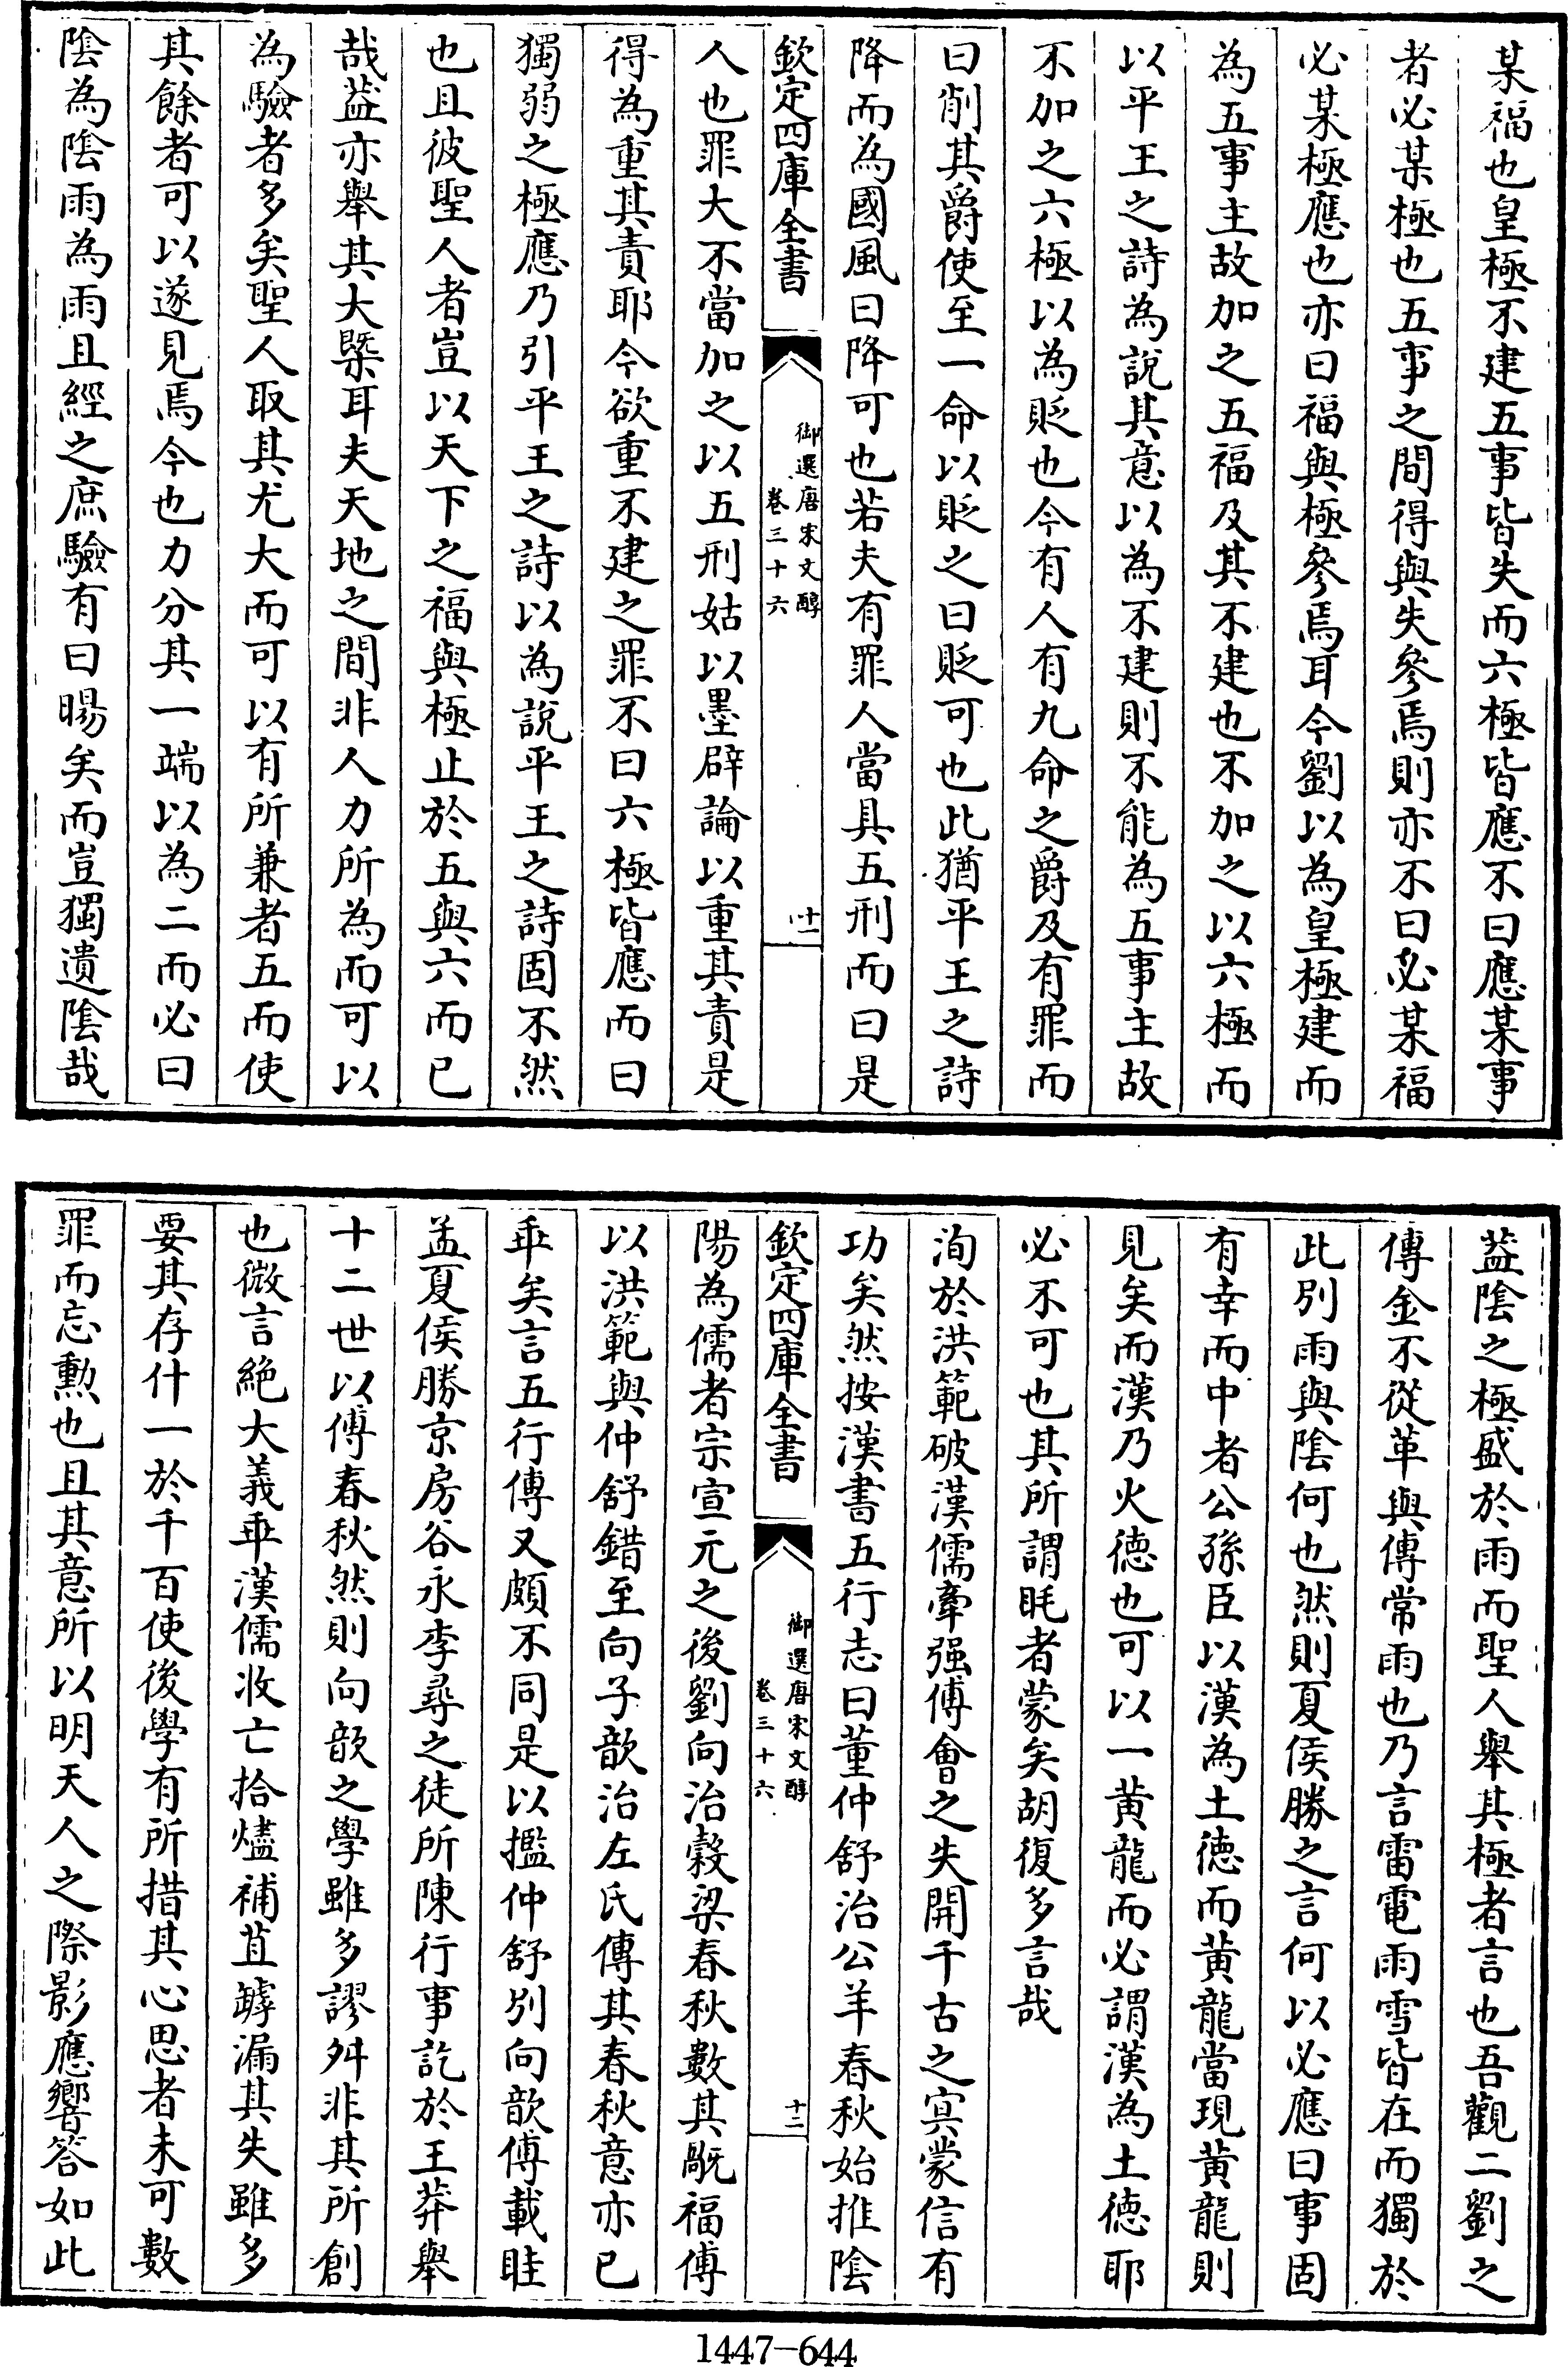 某福也皇極不建五事皆失而六極皆應不曰應某事
者必某極也五事之間得與失參焉則亦不曰必某福
必某極應也亦曰福與極參焉耳今劉以為皇極建而
為五事主故加之五福及其不建也不加之以六極而
以平王之詩為說其意以為不建則不能為五事主故
不加之六極以為貶也今有人有九命之爵及有罪而
曰削其爵使至一命以貶之曰貶可也此猶平王之詩
降而為國風曰降可也若夫有罪人當具五刑而曰是
欽定四庫全書
御選唐宋文醇
卷三十六
十一
人也罪大不當加之以五刑姑以墨辟論以重其責是
得為重其責耶今欲重不建之罪不曰六極皆應而曰
獨弱之極應乃引平王之詩以為說平王之詩固不然
也且彼聖人者豈以天下之福與極止於五與六而已
哉葢亦舉其大槩耳夫天地之間非人力所為而可以
為驗者多矣聖人取其尤大而可以有所兼者五而使
其餘者可以遂見焉今也力分其一端以為二而必曰
隂為隂雨為雨且經之庶驗有曰暘矣而豈獨遺隂哉
葢隂之極盛於雨而聖人舉其極者言也吾觀二劉之
傳金不從革與傳常雨也乃言雷電雨雪皆在而獨於
此別雨與隂何也然則夏侯勝之言何以必應曰事固
有幸而中者公孫臣以漢為土徳而黃龍當現黃龍則
見矣而漢乃火徳也可以一黃龍而必謂漢為土徳耶
必不可也其所謂眊者蒙矣胡復多言哉
洵於洪範破漢儒牽强傅會之失開千古之㝠蒙信有
功矣然按漢書五行志曰董仲舒治公羊春秋始推隂
欽定四庫全書
御選唐宋文醇
卷三十六
十二
陽為儒者宗宣元之後劉向治穀梁春秋數其旤福傅
以洪範與仲舒錯至向子歆治左氏傳其春秋意亦已
乖矣言五行傳又頗不同是以㩜仲舒别向歆傅載眭
孟夏侯勝京房谷永李尋之徒所陳行事訖於王莽舉
十二世以傅春秋然則向歆之學雖多謬舛非其所創
也微言絶大義乖漢儒收亡拾燼補苴罅漏其失雖多
要其存什一於千百使後學有所措其心思者未可數
罪而忘勲也且其意所以明天人之際影應響答如此
1447-644